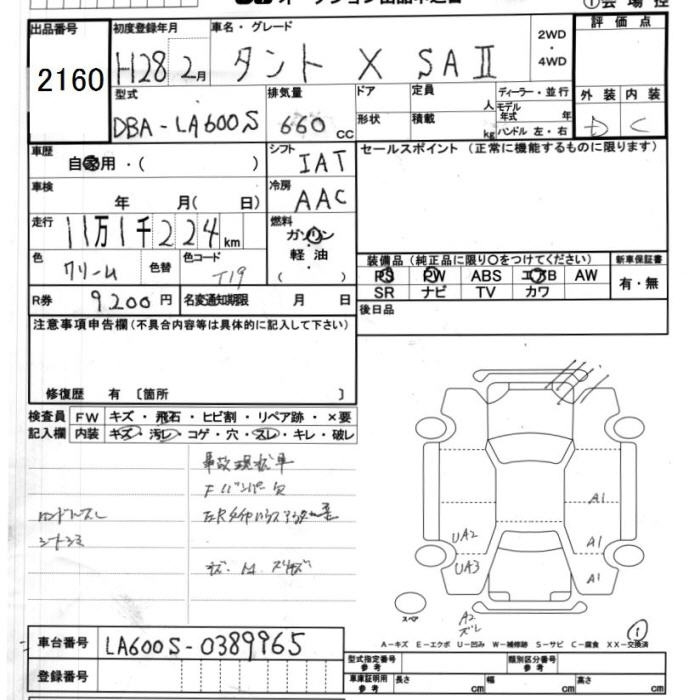 オークション出品申込書
①会場控
出品番号 初度登録年月 車名・グレード 2WD・4WD 評価点
2160 H28 2月 タント X SAⅡ
型式 排気量 ドア 定員 人 ディーラー・並行 外装 内装
モデル年式 年
DBA-LA600S 660 cc 形状 積載 kg ハンドル 左・右 D C
車歴 シフト セールスポイント (正常に機能するものに限ります)
自家用・( ) IAT
車検 冷房
年 月( 日) AAC
走行 燃料
11万1千224km ガソリン
軽油
( )
色 クリーム 色替 色コード T19
装備品 (純正品に限り○をつけてください) 新車保証書
PS PW ABS エアB AW 有・無
SR ナビ TV カワ
R券 9,200円 名変通知期限 月 日 後日品
注意事項申告欄 (不具合内容等は具体的に記入して下さい)
修復歴 有 〔箇所 〕
検査員 FW キズ・飛石・ヒビ割・リペア跡・×要
記入欄 内装 キズ・汚レ・コゲ・穴・スレ・キレ・破レ
事故現状車
Fバンパー欠
ハンドルスレ
シートシミ
A1
UA2 A1
UA3 A1
スペア
A2
ズレ
①
A-キズ E-エクボ U-凹み W-補修跡 S-サビ C-腐食 XX-交換済
車台番号 LA600S-0389965
登録番号
型式指定番号 参考 類別区分番号 参考
車庫証明用 参考 長さ cm 幅 cm 高さ cm